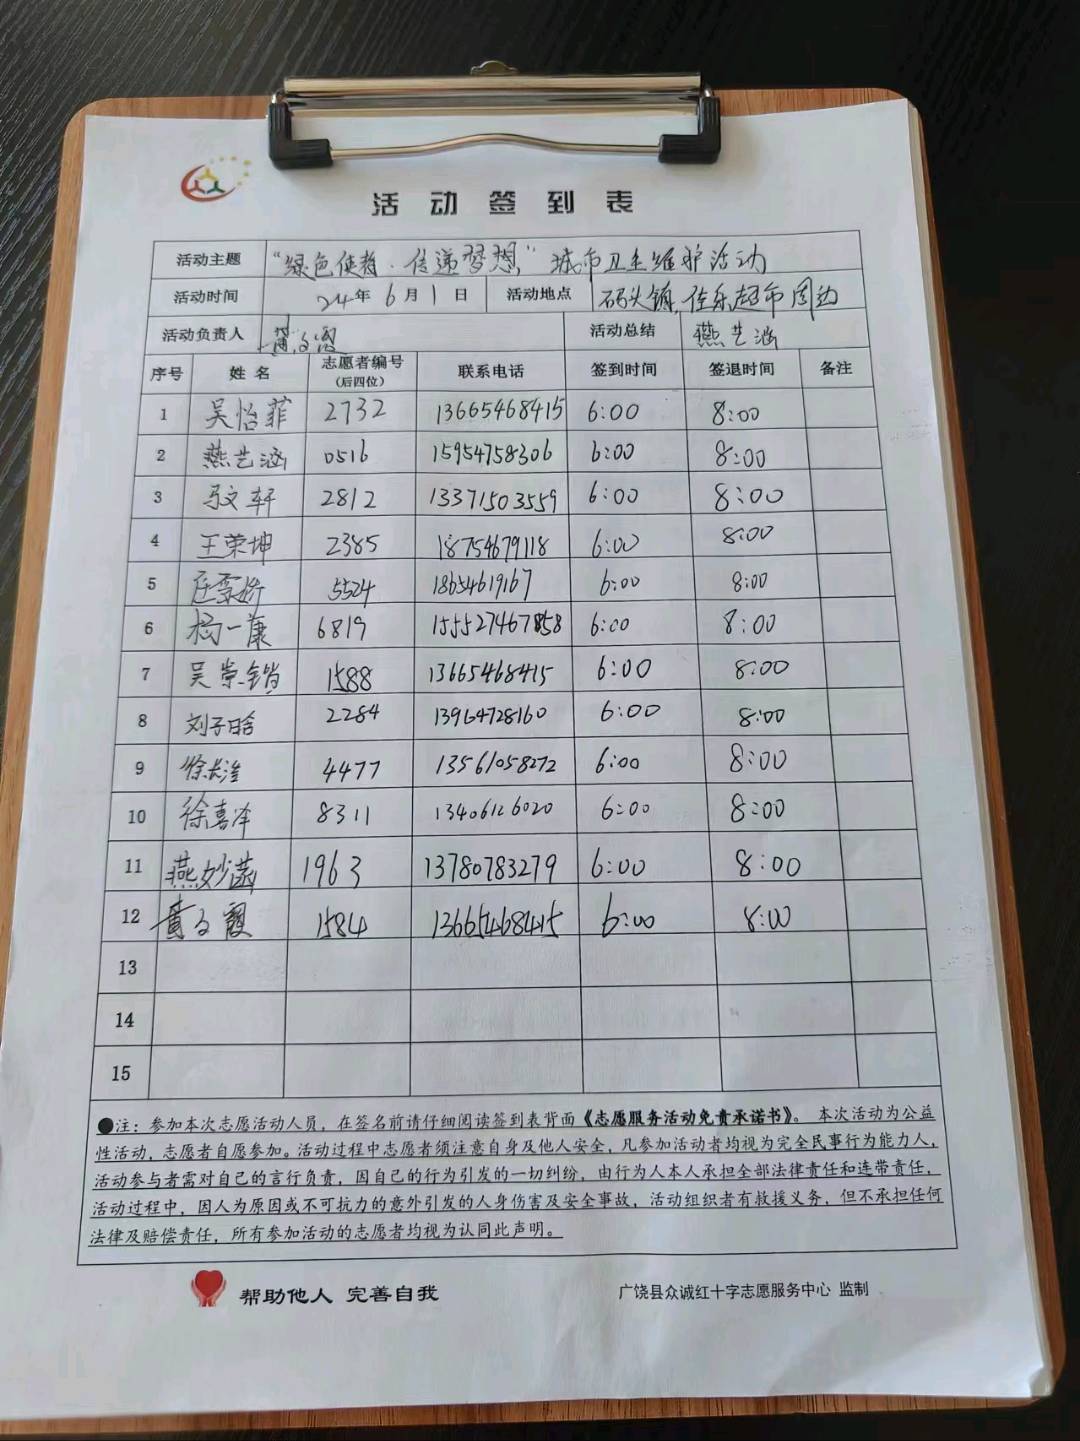 活动签到表
活动主题 "绿色使者·传递梦想"城市卫生维护活动
活动时间 24年6月1日 活动地点 码头镇,佳乐超市周边
活动负责人 活动总结 燕艺涵
序号 姓名 志愿者编号(后四位) 联系电话 签到时间 签退时间 备注
1 吴怡菲 2732 13665468415 6:00 8:00
2 燕艺涵 0516 15954758306 6:00 8:00
3 马文轩 2812 13371503559 6:00 8:00
4 王荣坤 2385 18754679118 6:00 8:00
5 5524 18654619167 6:00 8:00
6 杨一康 6819 6:00 8:00
7 吴崇锴 1588 13665468415 6:00 8:00
8 刘子晗 2284 13964728160 6:00 8:00
9 4477 13561058272 6:00 8:00
10 徐喜泽 8311 13406126020 6:00 8:00
11 燕妙菡 1963 13780783279 6:00 8:00
12 黄文霞 1584 13665468415 6:00 8:00
13
14
15
●注:参加本次志愿活动人员,在签名前请仔细阅读签到表背面《志愿服务活动免责承诺书》。本次活动为公益
性活动,志愿者自愿参加。活动过程中志愿者须注意自身及他人安全,凡参加活动者均视为完全民事行为能力人,
活动参与者需对自己的言行负责,因自己的行为引发的一切纠纷,由行为人本人承担全部法律责任和连带责任,
活动过程中,因人为原因或不可抗力的意外引发的人身伤害及安全事故,活动组织者有救援义务,但不承担任何
法律及赔偿责任,所有参加活动的志愿者均视为认同此声明。
帮助他人 完善自我 广饶县众诚红十字志愿服务中心 监制